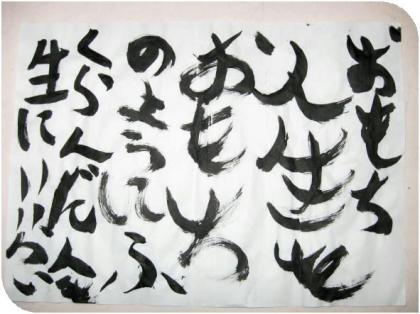 おもち
人生も
おもち
のようにふ
くらんだ人
生に